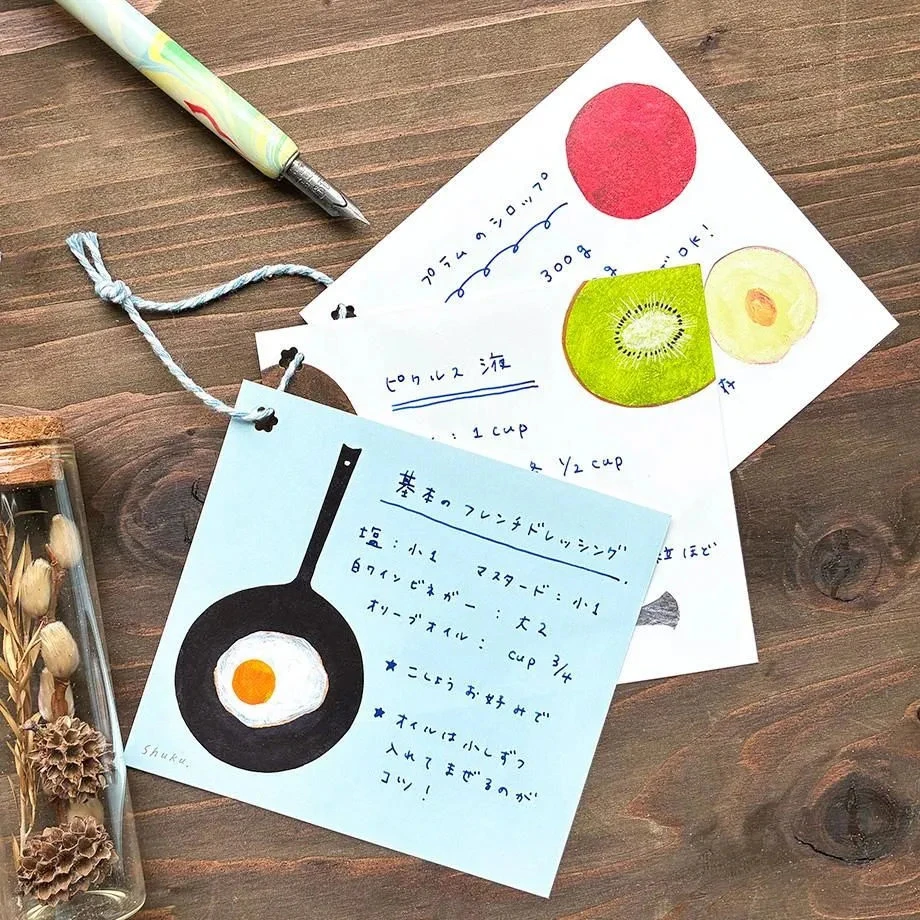 プラムのシロップ
300g
OK!
ピクルス液
: 1 cup
1/2 cup
ほど
基本のフレンチドレッシング
塩:小1 マスタード:小1
白ワインビネガー:大2
オリーブオイル: cup 3/4
★こしょうお好みで
★オイルは小しずつ
入れてまぜるのが
コツ!
shuku.